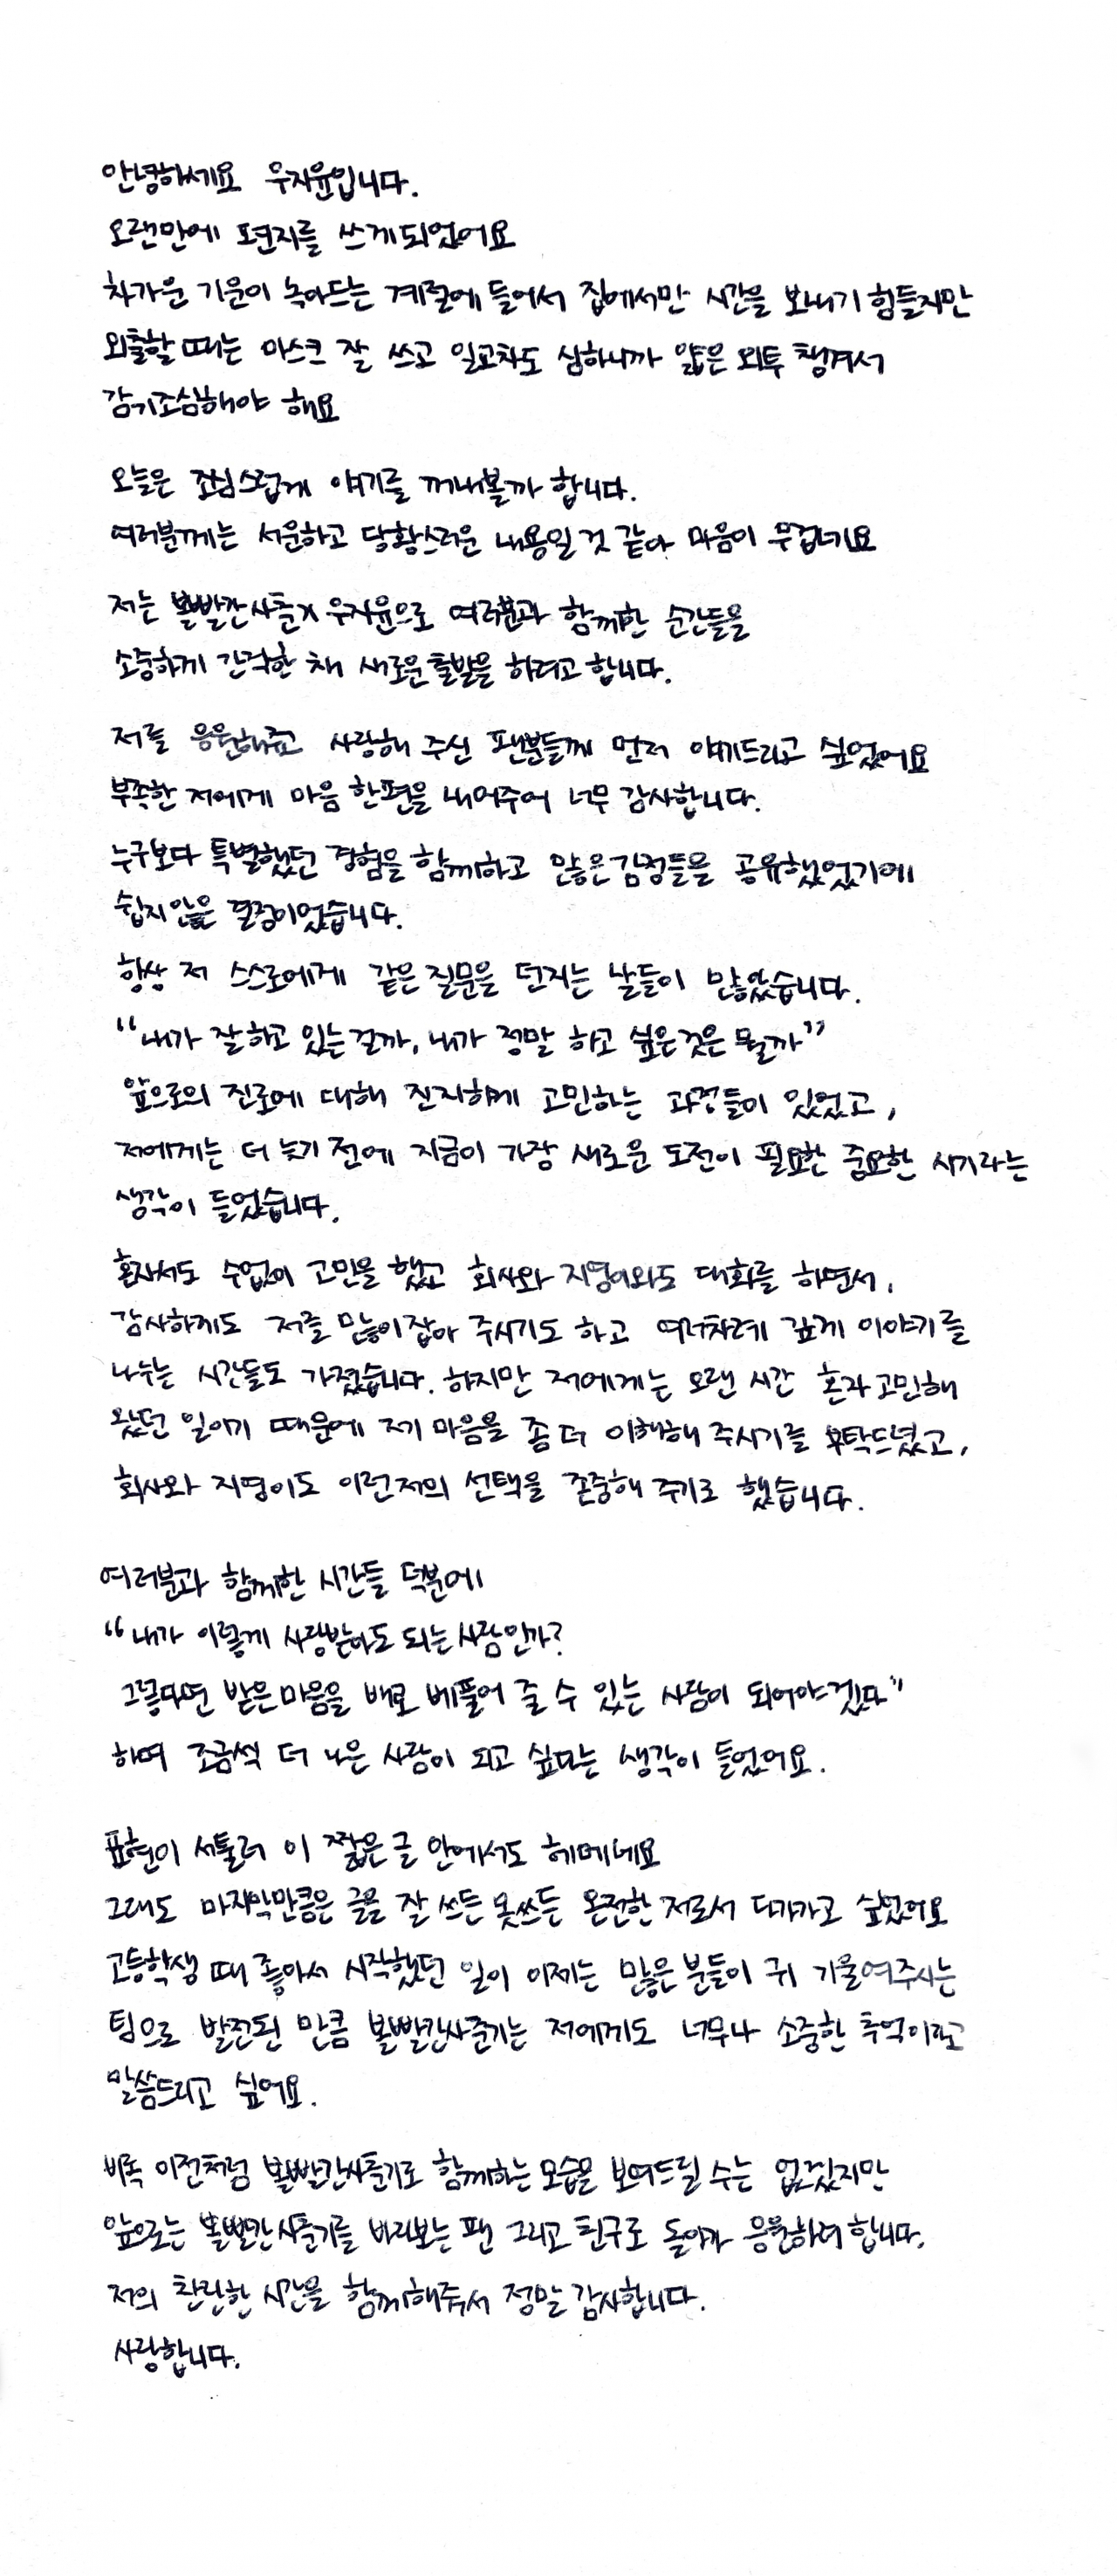 안녕하세요 우지윤입니다.
오랜만에 편지를 쓰게 되었어요
차가운 기운이 녹아드는 계절에 들어서 집에서만 시간을 보내기 힘들지만
외출할 때는 마스크 잘 쓰고 일교차도 심하니까 얇은 외투 챙겨서
감기조심해야 해요
오늘은 조심스럽게 얘기를 꺼내볼까 합니다.
여러분께는 서운하고 당황스러운 내용일 것 같아 마음이 무겁네요
저는 볼빨간사춘기 우지윤으로 여러분과 함께한 순간들을
소중하게 간직한 채 새로운 출발을 하려고 합니다.
저를 응원해주고 사랑해 주신 팬분들께 먼저 얘기드리고 싶었어요
부족한 저에게 마음 한편을 내어주어 너무 감사합니다.
누구보다 특별했던 경험을 함께하고 많은 감정들을 공유했었기에
쉽지 않은 결정이었습니다.
항상 저 스스로에게 같은 질문을 던지는 날들이 많았습니다.
“내가 잘 하고 있는 걸까, 내가 정말 하고 싶은 것은 뭘까”
앞으로의 진로에 대해 진지하게 고민하는 과정들이 있었고,
저에게는 더 늦기 전에 지금이 가장 새로운 도전이 필요한 중요한 시기라는
생각이 들었습니다.
혼자서도 수없이 고민을 했고 회사와 지영이와도 대화를 하면서,
감사하게도 저를 많이 잡아 주시기도 하고 여러차례 깊게 이야기를
나누는 시간들도 가졌습니다. 하지만 저에게는 오랜 시간 혼자 고민해
왔던 일이기 때문에 제 마음을 좀 더 이해해 주시기를 부탁드렸고,
회사와 지영이도 이런 저의 선택을 존중해 주기로 했습니다.
여러분과 함께한 시간들 덕분에
“내가 이렇게 사랑받아도 되는 사람인가?
그렇다면 받은 마음을 배로 베풀어 줄 수 있는 사람이 되어야겠다”
하며 조금씩 더 나은 사람이 되고 싶다는 생각이 들었어요.
표현이 서툴러 이 짧은 글 안에서도 헤메네요
그래도 마지막만큼은 글을 잘 쓰든 못쓰든 온전한 저로서 다가가고 싶었어요
고등학생 때 좋아서 시작했던 일이 이제는 많은 분들이 귀 기울여주시는
팀으로 발전된 만큼 볼빨간사춘기는 저에게도 너무나 소중한 추억이라고
말씀드리고 싶어요.
비록 이전처럼 볼빨간사춘기로 함께하는 모습을 보여드릴 수는 없겠지만
앞으로는 볼빨간사춘기를 바라보는 팬 그리고 친구로 돌아가 응원하려 합니다.
저의 찬란한 시간을 함께해줘서 정말 감사합니다.
사랑합니다.